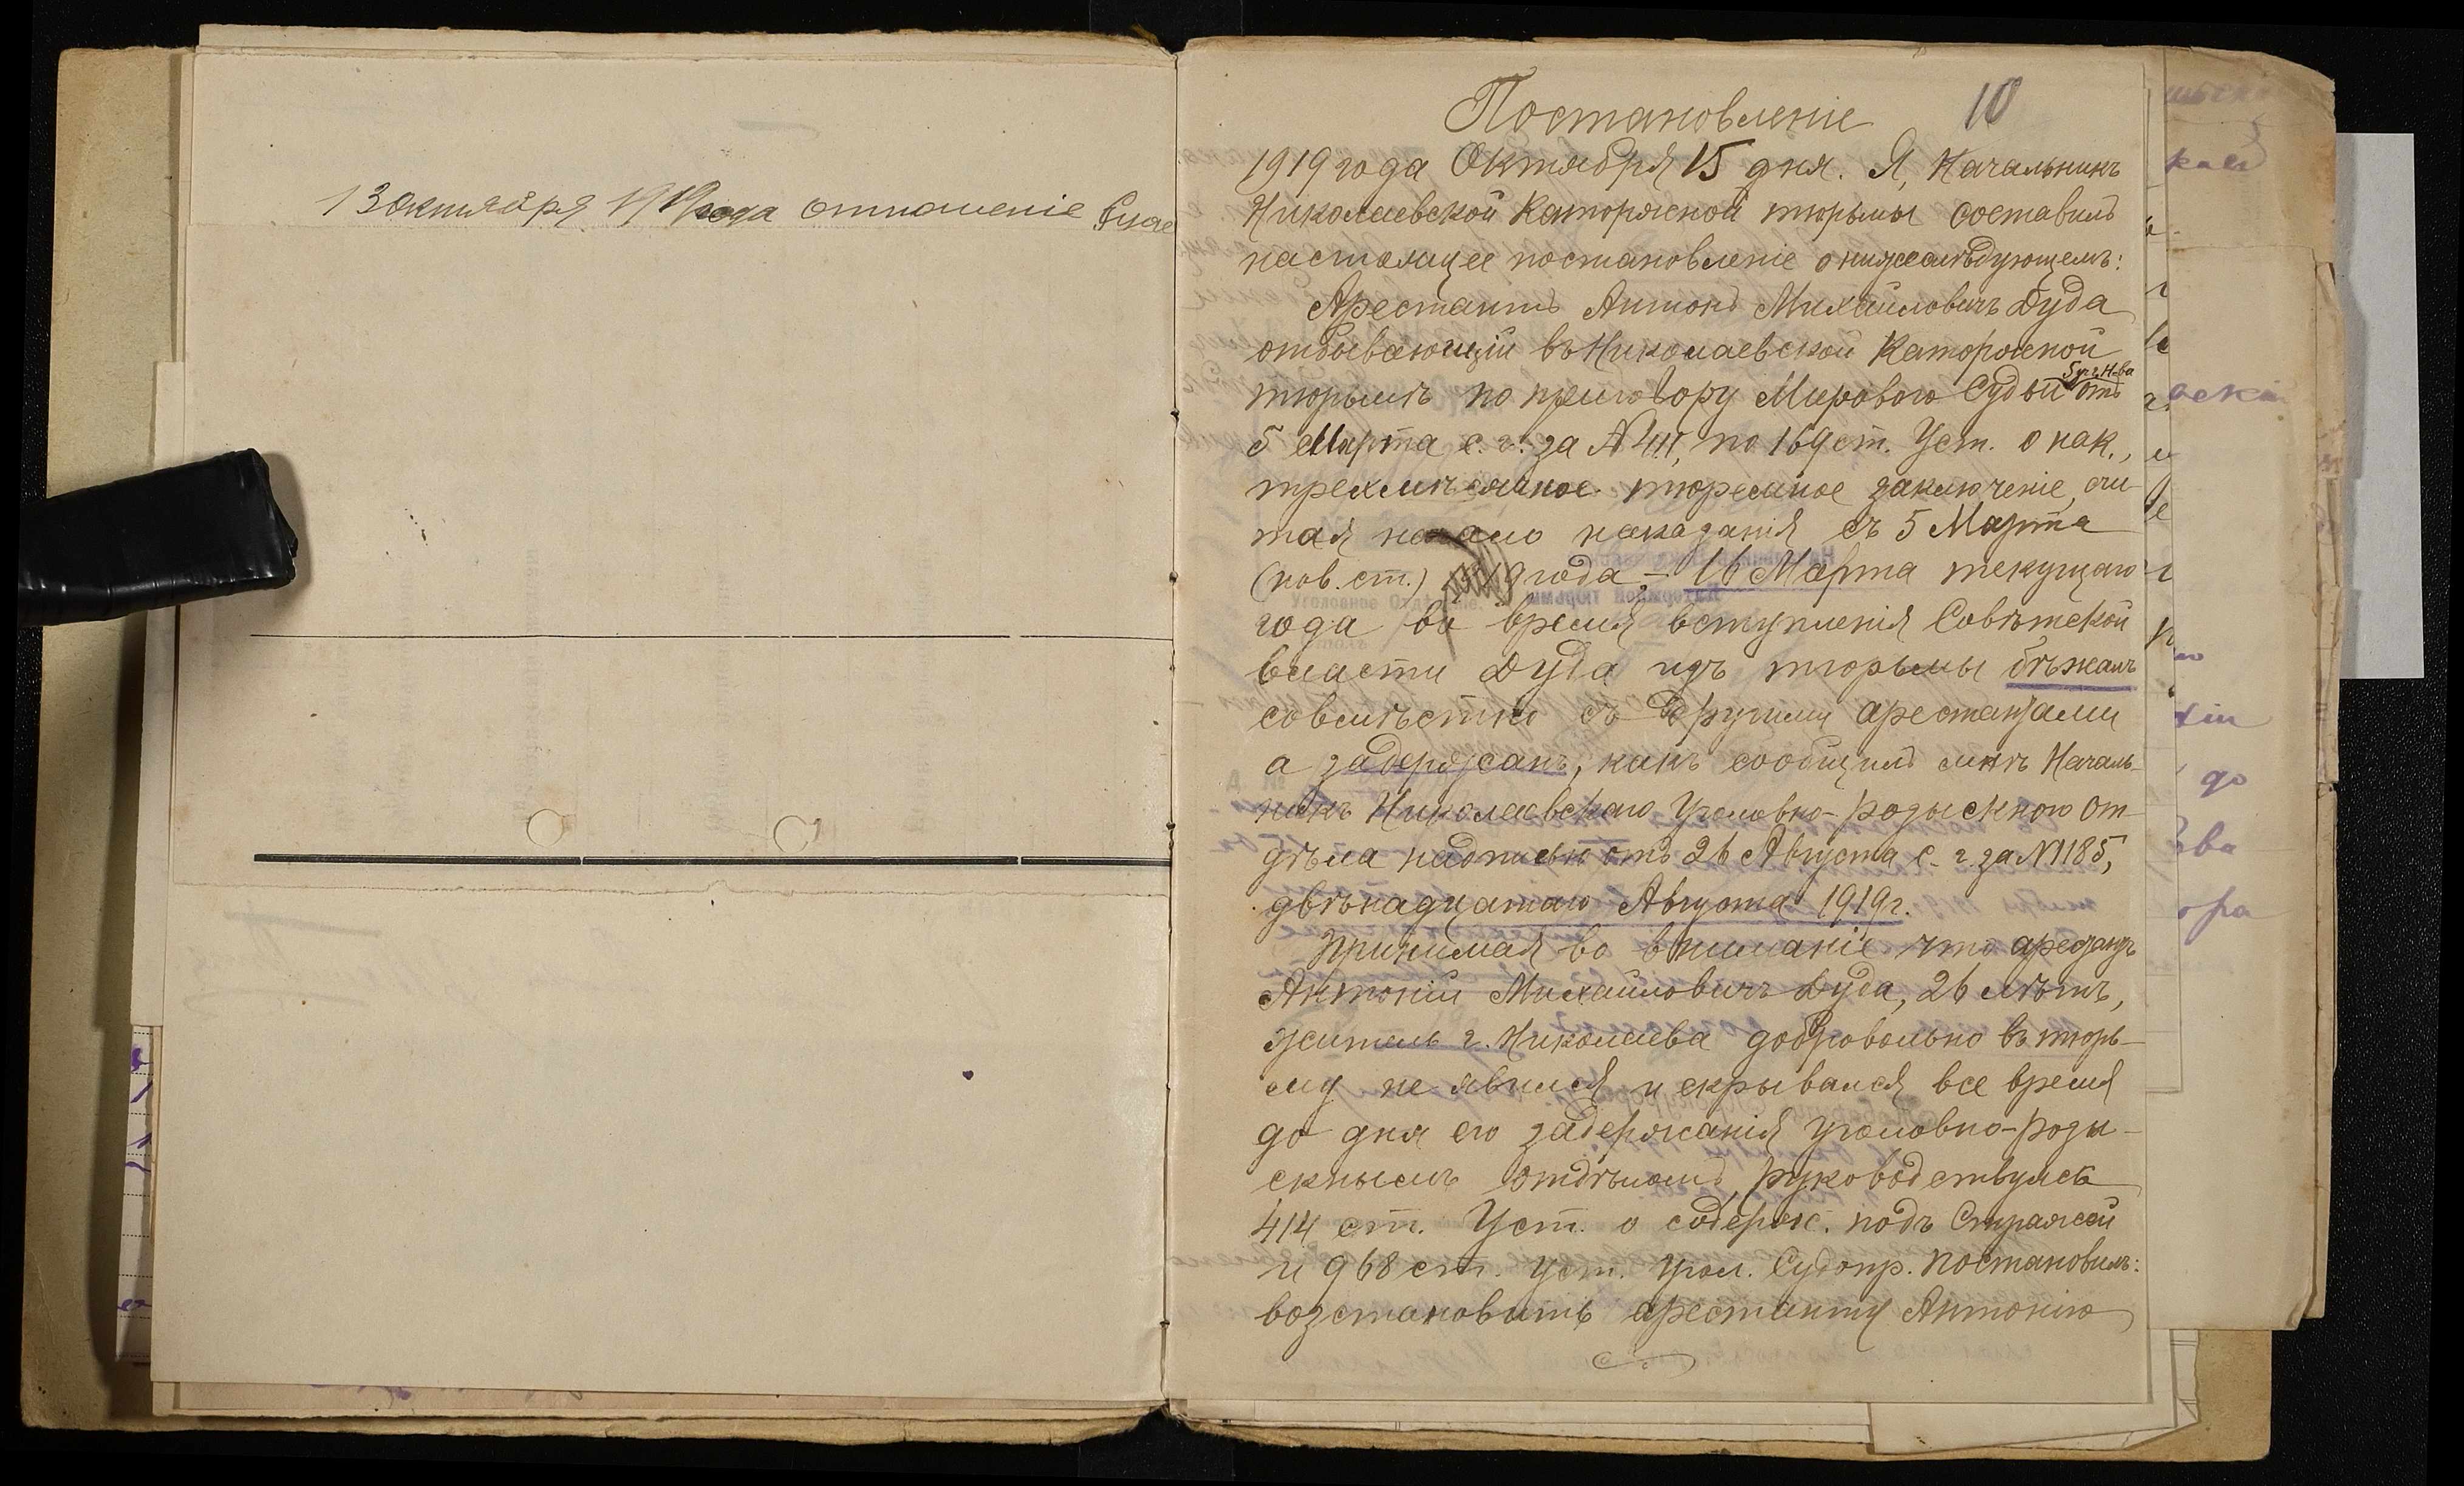 13 октября 1919 года отношеніе
10
Постановленіе
1919 года Октября 15 дня. Я, Начальникъ
Николаевской Каторжной тюрьмы составилъ
настоящее постановленіе о нижеслѣдующемъ:
Арестантъ Антонъ Михайловичъ Дуда
отбывающій въ Николаевской Каторжной
тюрьмѣ по приговору Мирового Судьи 5 уч. г. Н-ва отъ
5 Марта с. г. за № 411, по 169 ст. Уст. о нак.,
трехмѣсячное тюремное заключеніе, счи-
тая начало наказанія съ 5 Марта
(нов. ст.) 1919 года – 16 Марта текущаго
года во время вступленія Совѣтской
власти Дуда изъ тюрьмы бѣжалъ
совмѣстно съ другими арестантами
а задержанъ, какъ сообщилъ мнѣ Началь-
никъ Николаевскаго Уголовно-розыскного от-
дѣла надписью отъ 26 Августа с. г. за № 1185,
двѣнадцатаго Августа 1919 г.
Принимая во вниманіе что арестантъ
Антоній Михайловичъ Дуда, 26 лѣтъ,
житель г. Николаева добровольно въ тюрь-
му не явился и скрывался все время
до дня его задержанія уголовно-розы-
скнымъ отдѣломъ, руководствуясь
414 ст. Уст. о содерж. подъ Стражей
и 968 ст. Уст. Угол. Судопр. постановилъ:
возстановить арестанту Антонію
каей
до
ора